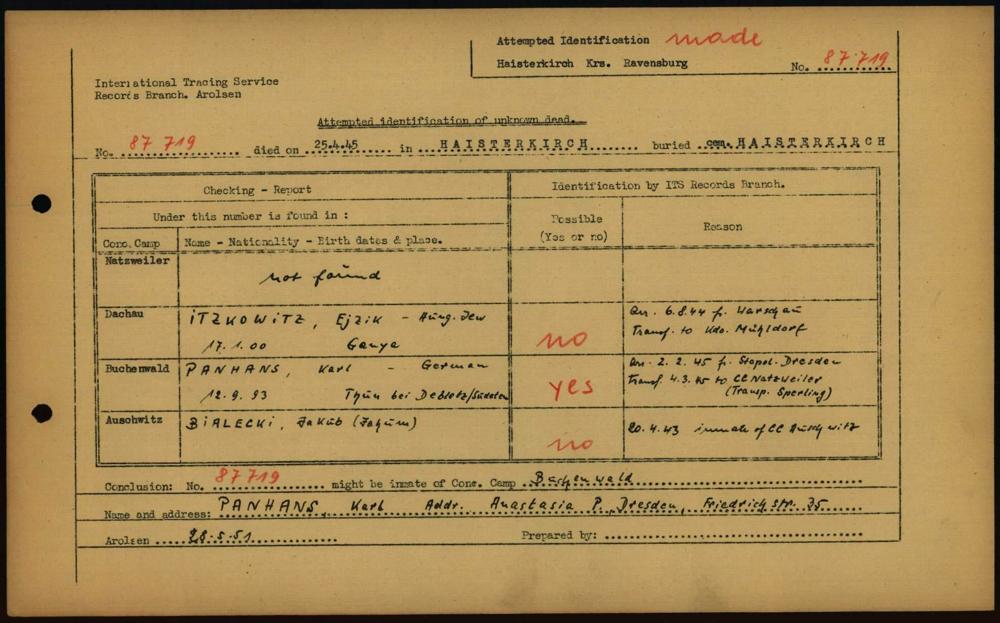 Attempted Identification made
Haisterkirch Krs. Ravensburg No. 87 719
International Tracing Service
Records Branch. Arolsen
Attempted identification of unknown dead.
No. 87 719 died on 25.4.45 in HAISTERKIRCH buried cem. HAISTERKIRCH
Checking - Report
Identification by ITS Records Branch.
Under this number is found in :
Possible
(Yes or no)
Reason
Conc. Camp
Name - Nationality - Birth dates & place.
Natzweiler
not found
Dachau
ITZKOWITZ, Ejzik - Hung. Jew
17.1.00 Ganya
no
Arr. 6.8.44 f. Warschau
Transf. to Kdo. Mühldorf
Buchenwald
PANHANS, Karl - German
12.9.93 Thun bei Debsotz/Sudeten
yes
Arr. 2.2.45 f. Stapol. Dresden
Transf. 4.3.45 to CC Natzweiler
(Transp. Sperling)
Auschwitz
BIALECKI, Jakub
no
20.4.43 inmate of CC Auschwitz
Conclusion: No. 87719 might be inmate of Conc. Camp Buchenwald
Name and address: PANHANS, Karl Addr. Anastasia P. Dresden, Friedrichstr. 35
Arolsen 28.5.51 Prepared by: